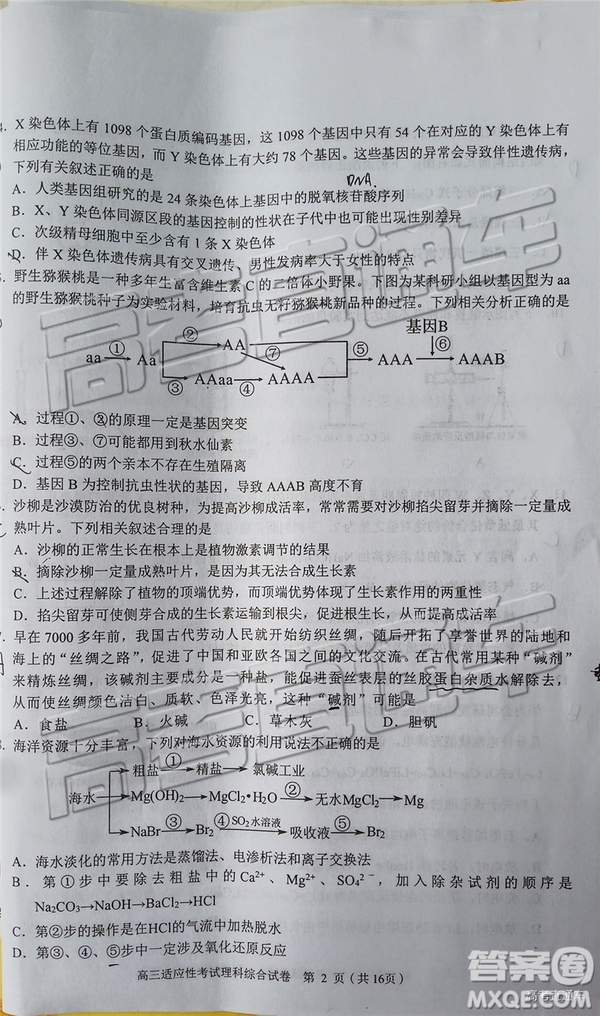 4. X 染色体上有 1098 个蛋白质编码基因，这 1098 个基因中只有 54 个在对应的 Y 染色体上有
相应功能的等位基因，而 Y 染色体上有大约 78 个基因。这些基因的异常会导致伴性遗传病，
下列有关叙述正确的是
DNA
A．人类基因组研究的是 24 条染色体上基因中的脱氧核苷酸序列
B．X、Y 染色体同源区段的基因控制的性状在子代中也可能出现性别差异
C．次级精母细胞中至少含有 1 条 X 染色体
D．伴 X 染色体遗传病具有交叉遗传、男性发病率大于女性的特点
野生猕猴桃是一种多年生富含維生素 C 的二倍体小野果。下图为某科研小组以基因型为 aa
的野生猕猴桃种子为实验材料，培育抗虫无籽猕猴桃新品种的过程。下列相关分析正确的是
基因B
② AA
aa ① Aa ⑦ ⑤ AAA ⑥ AAAB
③ AAaa ④ AAAA
A．过程①、②的原理一定是基因突变
B．过程③、⑦都可用到秋水仙素
C．过程⑤的两个亲本不存在生殖隔离
D．基因 B 为控制抗虫性状的基因，导致 AAAB 高度不育
沙柳是沙漠防治的优良树种，为提高沙柳成活率，常常需要对沙柳掐尖留芽并摘除一定量成
熟叶片。下列相关叙述合理的是
A．沙柳的正常生长在根本上是植物激素调节的结果
B．摘除沙柳一定量成熟叶片，是因为其无法合成生长素
C．上述过程解除了植物的顶端优势，而顶端优势体现了生长素作用的两重性
D．掐尖留芽可使芽尖合成的生长素主动运输到根尖，促进根系生长，提高成活率
早在 7000 多年前，我国古代劳动人民就开始纺织丝绸，随后开拓了享誉世界的陆地和
海上的“丝绸之路”，促进了中国和亚欧各国之间的文化交流。在古代常用某种“碱剂”
来精炼丝绸，该碱剂的主要成分是一种盐，能促进蚕丝表层的丝胶蛋白杂质水解除去，
从而使丝绸颜色洁白、质软、色泽光亮，这种“碱剂”可能是
A．食盐 B．火碱 C．草木灰 D．胆矾
海洋资源十分丰富，下列对海水资源的利用说法不正确的是
粗盐 ① 精盐 氯碱工业
海水 Mg(OH)₂ MgCl₂•H₂O ② 无水MgCl₂ Mg
NaBr ③ Br₂ ④ SO₂水溶液 吸收液 ⑤ Br₂
A．海水淡化的常用方法是蒸馏法、电渗析法和离子交换法
B．第①步中要除去粗盐中的 Ca²⁺、Mg²⁺、SO₄²⁻，加入除杂试剂的顺序是
Na₂CO₃→NaOH→BaCl₂→HCl
C．第②步的操作是在HCl的气流中加热脱水
D．第③、④、⑤步均发生氧化还原反应
高三适应性考试理科综合试卷 第 2 页（共 16页）
高考直通车
高考直通车
高考直通车
答案圈
MXQE.COM
高考直通车